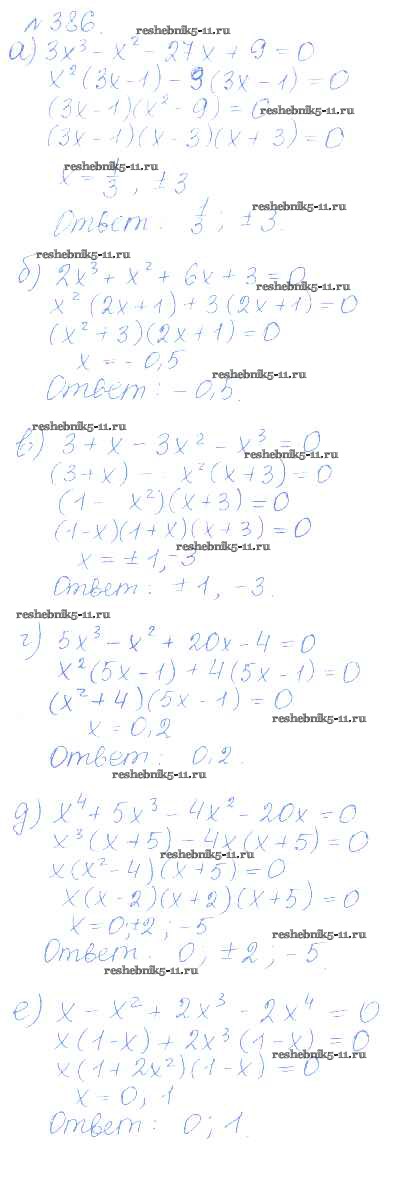 № 386.
reshebnik5-11.ru
а) 3x³ - x² - 27x + 9 = 0
x² (3x - 1) - 9 (3x - 1) = 0
(3x - 1)(x² - 9) = 0
reshebnik5-11.ru
(3x - 1)(x - 3)(x + 3) = 0
reshebnik5-11.ru
x = 1/3, ± 3
reshebnik5-11.ru
Ответ: 1/3; ± 3.
reshebnik5-11.ru
б) 2x³ + x² + 6x + 3 = 0
reshebnik5-11.ru
x² (2x + 1) + 3 (2x + 1) = 0
(x² + 3)(2x + 1) = 0
x = - 0,5
reshebnik5-11.ru
Ответ: - 0,5.
reshebnik5-11.ru
в) 3 + x - 3x² - x³ = 0
reshebnik5-11.ru
(3 + x) - x² (x + 3) = 0
(1 - x²)(x + 3) = 0
(1 - x)(1 + x)(x + 3) = 0
reshebnik5-11.ru
x = ± 1, -3
Ответ: ± 1, -3.
reshebnik5-11.ru
г) 5x³ - x² + 20x - 4 = 0
x² (5x - 1) + 4 (5x - 1) = 0
(x² + 4)(5x - 1) = 0
reshebnik5-11.ru
x = 0,2
Ответ: 0,2.
reshebnik5-11.ru
д) x⁴ + 5x³ - 4x² - 20x = 0
x³ (x + 5) - 4x (x + 5) = 0
reshebnik5-11.ru
x (x² - 4)(x + 5) = 0
x (x - 2)(x + 2)(x + 5) = 0
x = 0; ±2; -5
reshebnik5-11.ru
Ответ: 0; ± 2; -5.
reshebnik5-11.ru
е) x - x² + 2x³ - 2x⁴ = 0
x (1 - x) + 2x³ (1 - x) = 0
reshebnik5-11.ru
x (1 + 2x²)(1 - x) = 0
x = 0, 1
Ответ: 0; 1.